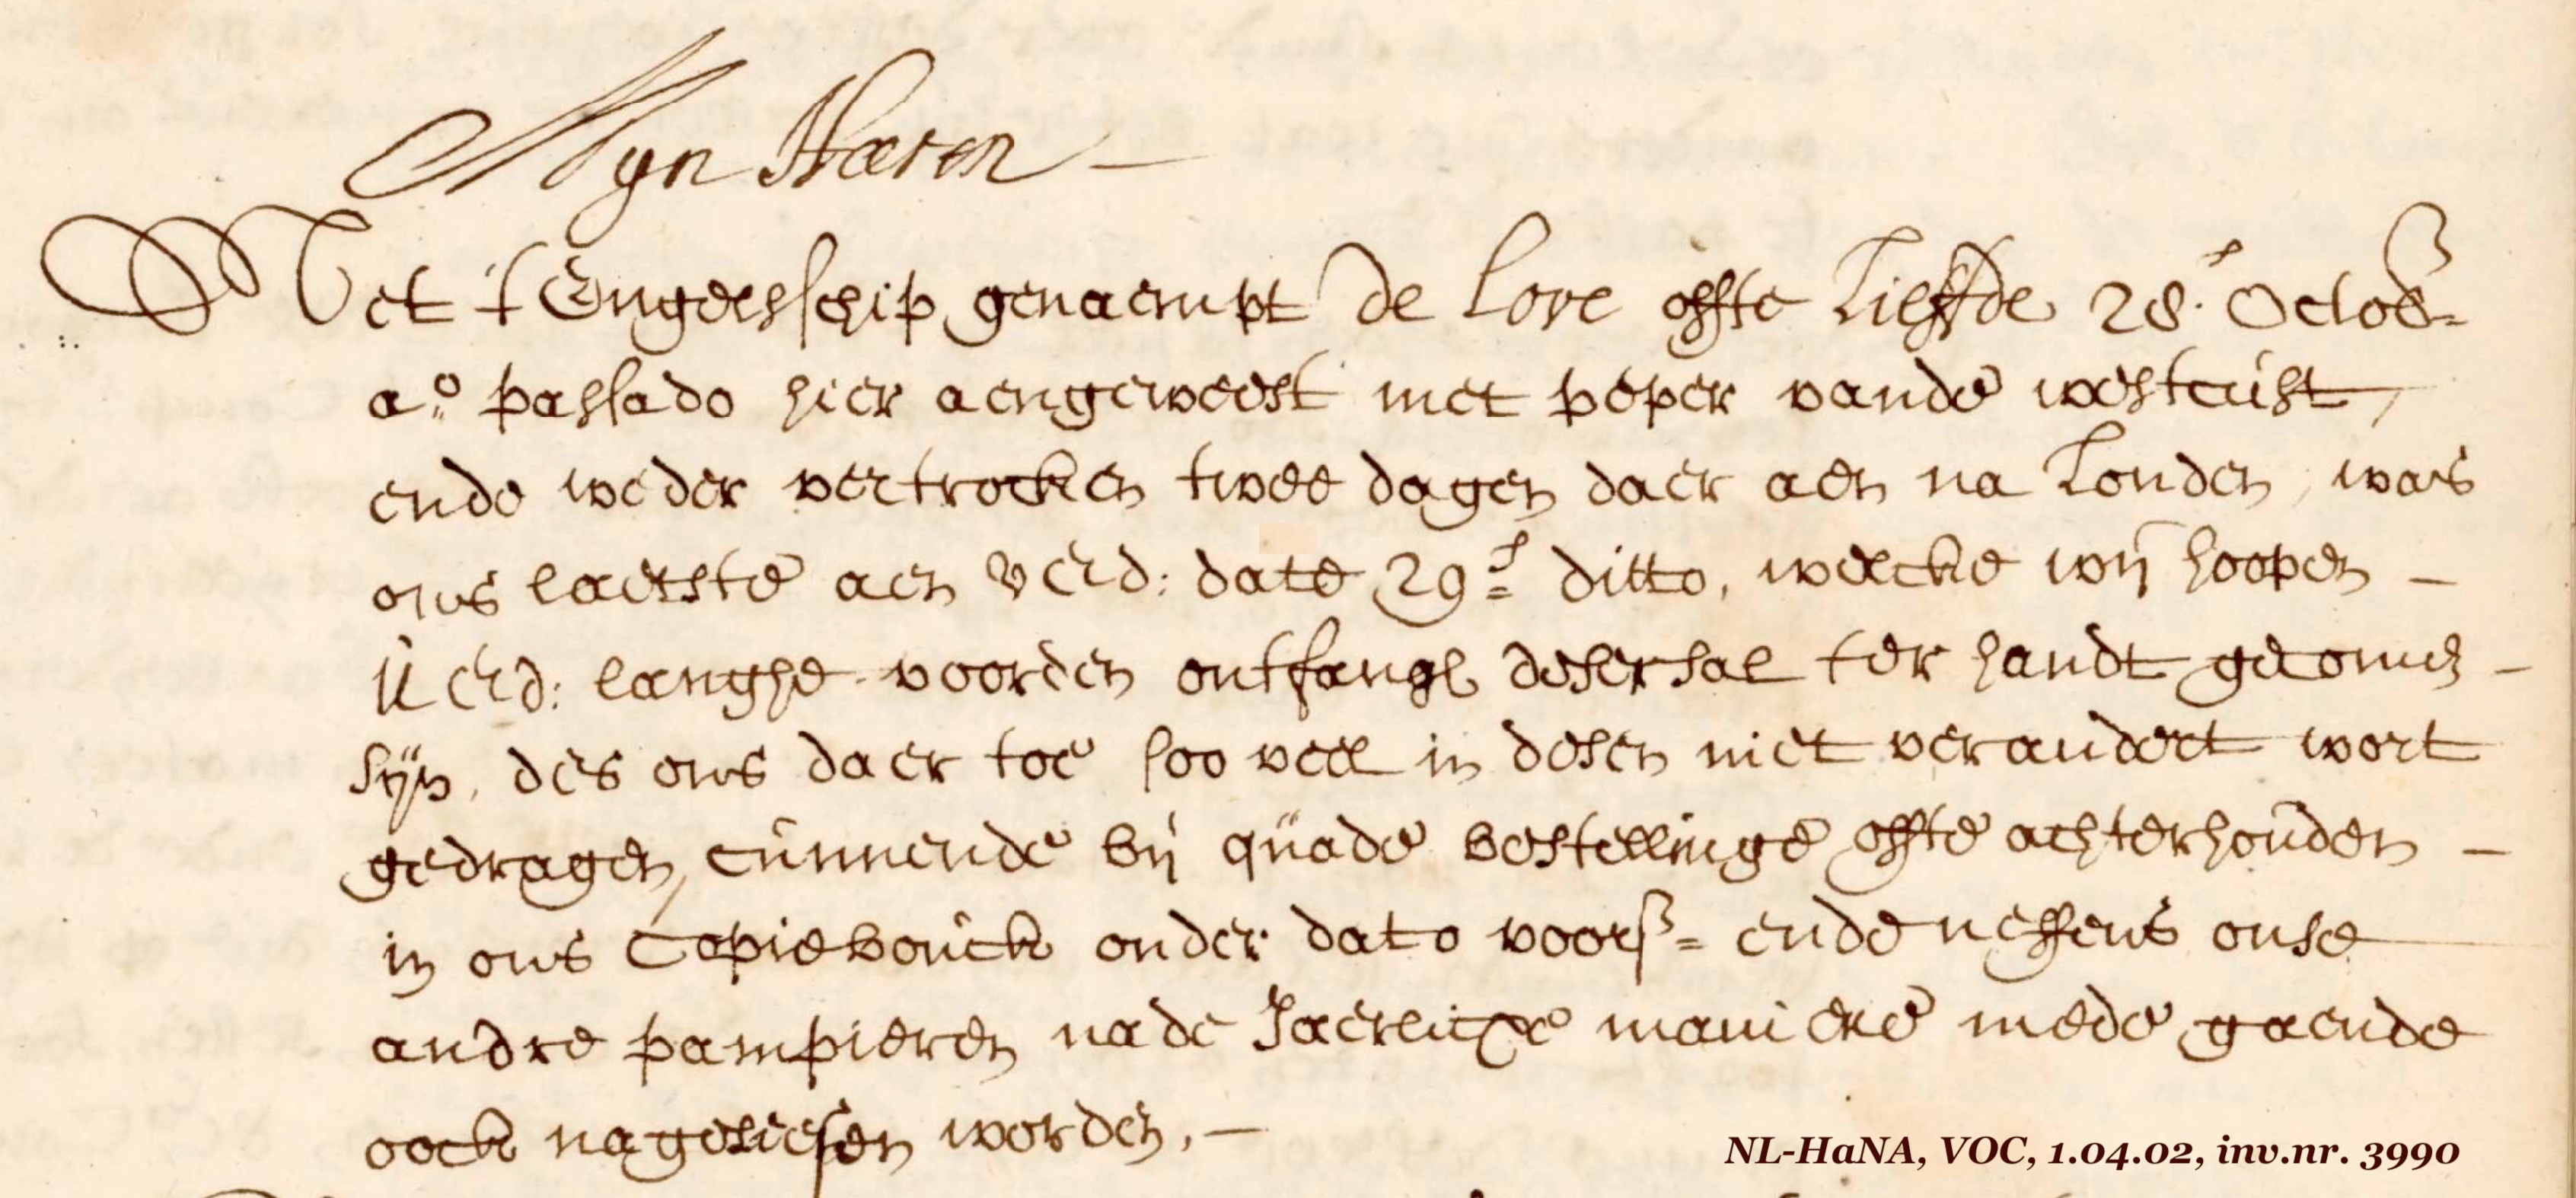 Myn Heeren
Met 't Engels schip genaempt de Love offte Lieffde 28.e Octob=
a.o passado hier aengeweest met peper vande westcust,
ende weder vertrocken twee dagen daer aen na Londen, was
ons laetste aen UEd: date 29=e ditto, welcke wij hoopen –
UEd: langhe voorden ontfangh deser sal ter handt gecomen –
sijn, des ons daer toe soo veel in desen niet verandert wort
gedragen, cunnende bij quade bestellinge offte achterhouden –
in ons Copieboúck onder dato voors= ende neffens onse
andre pampieren na de Jaerlicxe maniere mede gaende
oock nagelesen worden, –
NL-HaNA, VOC, 1.04.02, inv.nr. 3990